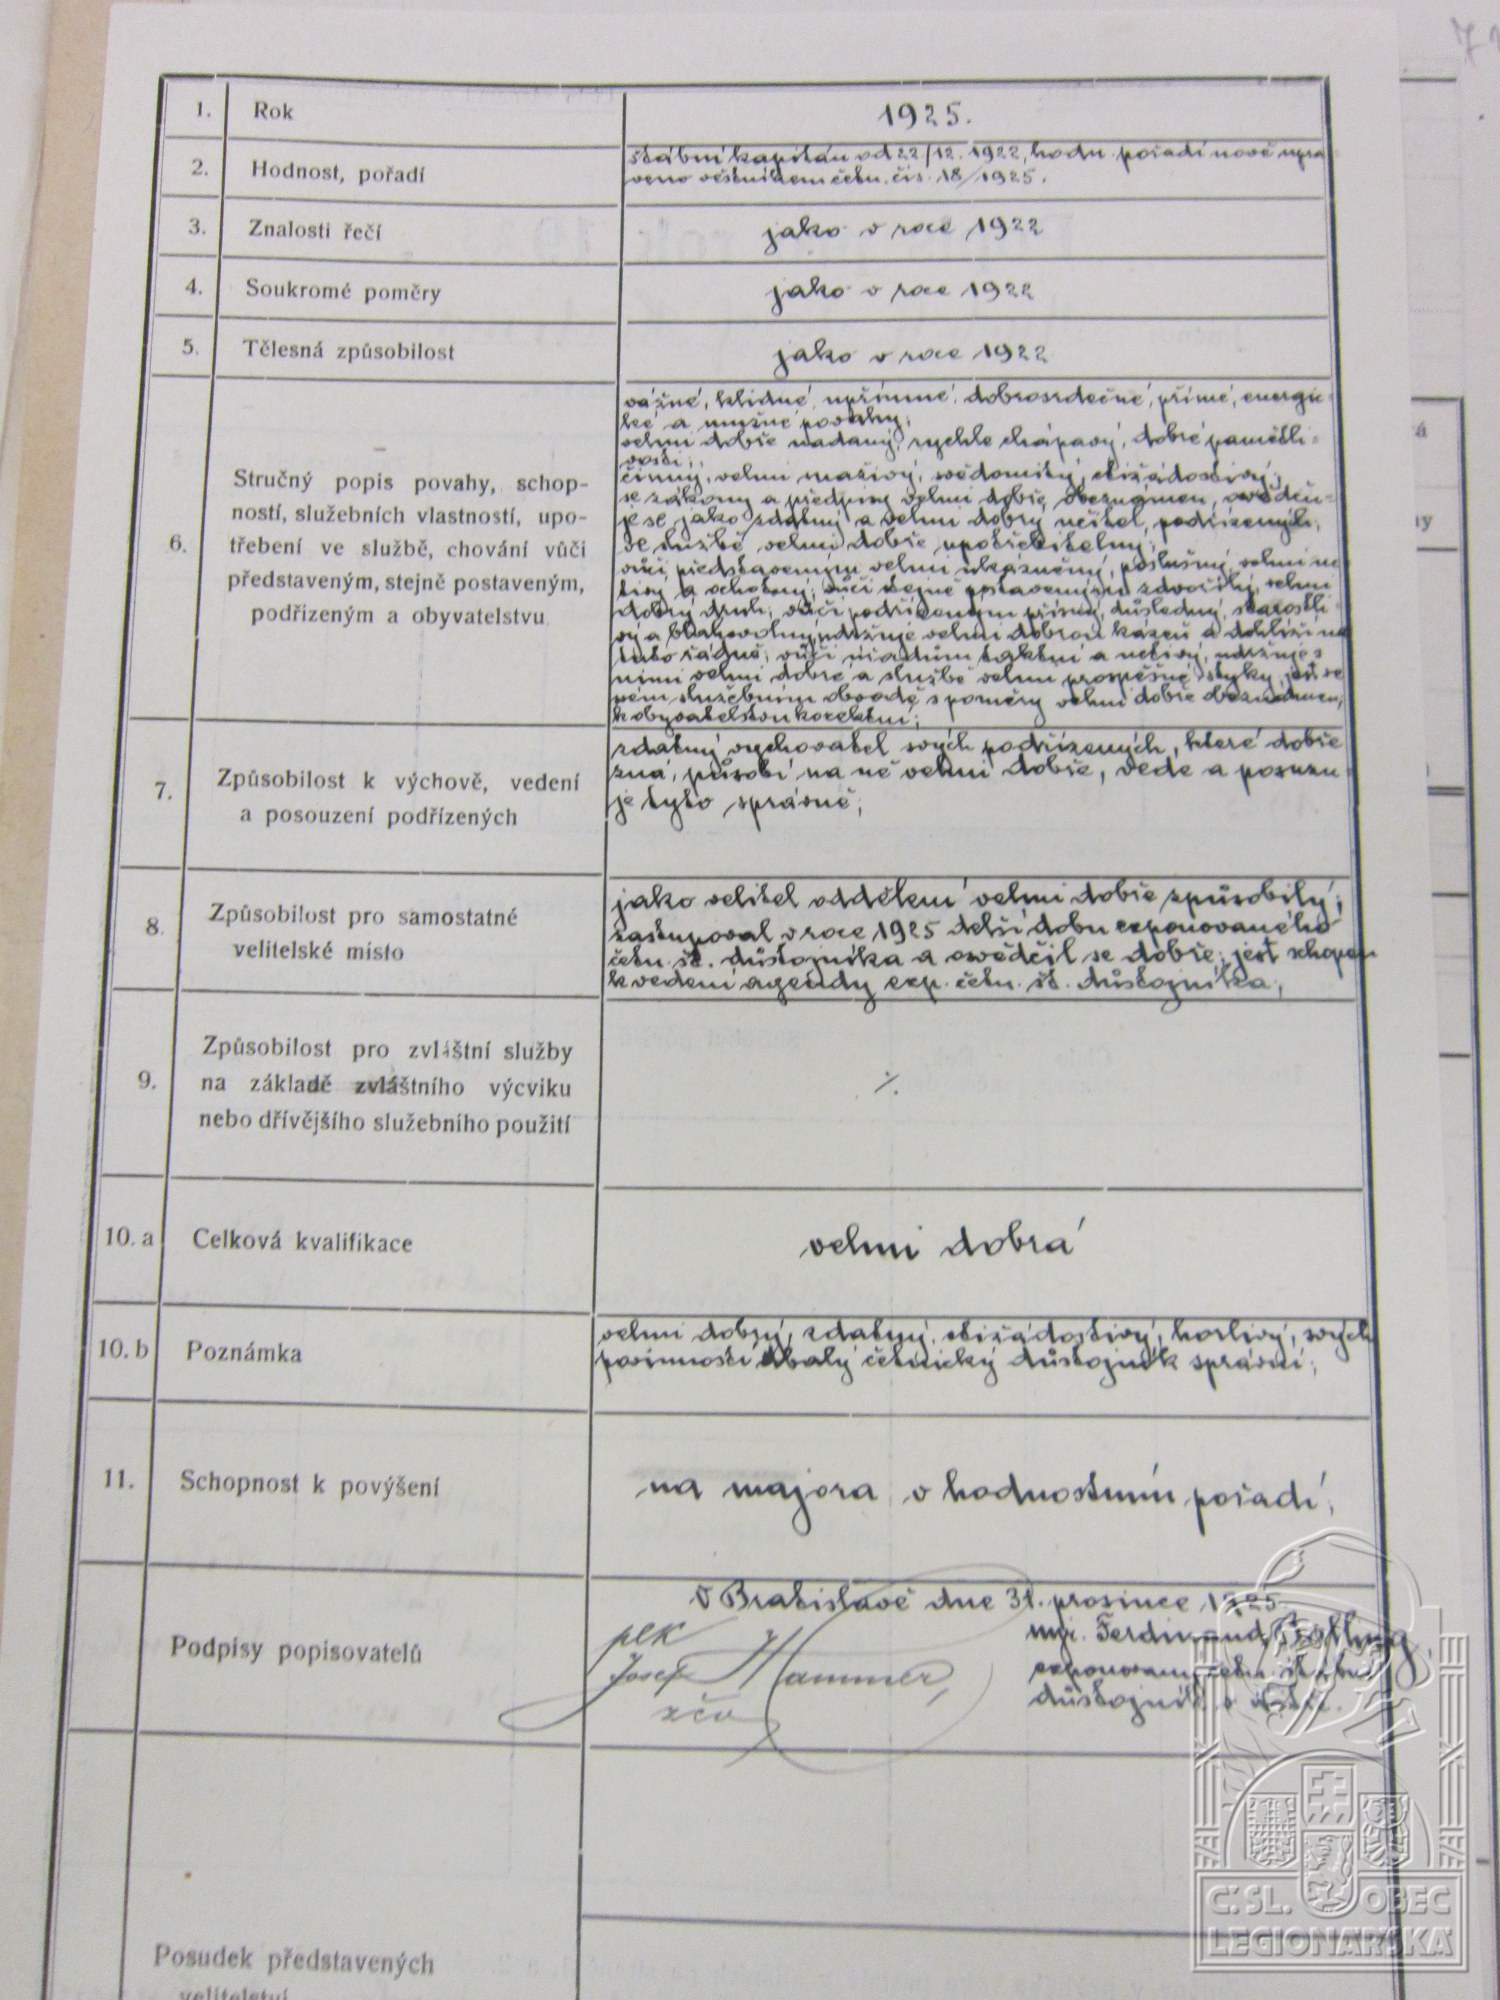 1.
Rok
1925.
2.
Hodnost, pořadí
štábní kapitán od 22./12. 1922, hodn. pořadí nově upra-
veno věstníkem četn. čís. 18/1925.
3.
Znalosti řečí
jako v roce 1922
4.
Soukromé poměry
jako v roce 1922
5.
Tělesná způsobilost
jako v roce 1922
6.
Stručný popis povahy, schop-
ností, služebních vlastností, upo-
třebení ve službě, chování vůči
představeným, stejně postaveným,
podřízeným a obyvatelstvu
vážné, klidné, upřímné, dobrosrdečné, přímé, energic-
ké a mužné povahy;
velmi dobře nadaný, rychle chápavý, dobré pamětli-
vosti;
činný, velmi snaživý, svědomitý, ctižádostivý;
se zákony a předpisy velmi dobře obeznámen, osvědču-
je se jako zdatný a velmi dobrý učitel podřízených,
ve službě velmi dobře upotřebitelný;
vůči představeným velmi ukázněný, poslušný, velmi uc-
tivý a ochotný; vůči stejně postaveným zdvořilý, velmi
dobrý druh; vůči podřízeným přísný, důsledný, starostli-
vý a blahovolný, udržuje velmi dobrou kázeň a dohlíží na
tuto řádně; vůči úřadům taktní a uctivý, udržuje s
nimi velmi dobré a službě velmi prospěšné styky, jest ve
svém služebním obvodě s poměry velmi dobře obeznámen,
k obyvatelstvu korektní;
7.
Způsobilost k výchově, vedení
a posouzení podřízených
zdatný vychovatel svých podřízených, které dobře
zná, působí na ně velmi dobře, vede a posuzu-
je tyto správně;
8.
Způsobilost pro samostatné
velitelské místo
jako velitel oddělení velmi dobře způsobilý;
zastupoval v roce 1925 delší dobu exponovaného
četn. št. důstojníka a osvědčil se dobře; jest schopen
k vedení agendy exp. četn. št. důstojníka;
9.
Způsobilost pro zvláštní služby
na základě zvláštního výcviku
nebo dřívějšího služebního použití
⁒
10. a
Celková kvalifikace
velmi dobrá
10. b
Poznámka
velmi dobrý, zdatný, ctižádostivý, horlivý, svých
povinností dbalý četnický důstojník správní;
11.
Schopnost k povýšení
na majora v hodnostním pořadí;
Podpisy popisovatelů
V Bratislavě dne 31. prosince 1925.
plk
Josef Hammer,
zčv
mjr. Ferdinand
exponovaný četn. štábní
důstojník v
Posudek představených
velitelství
Č. SL. OBEC
LEGIONÁŘSKÁ